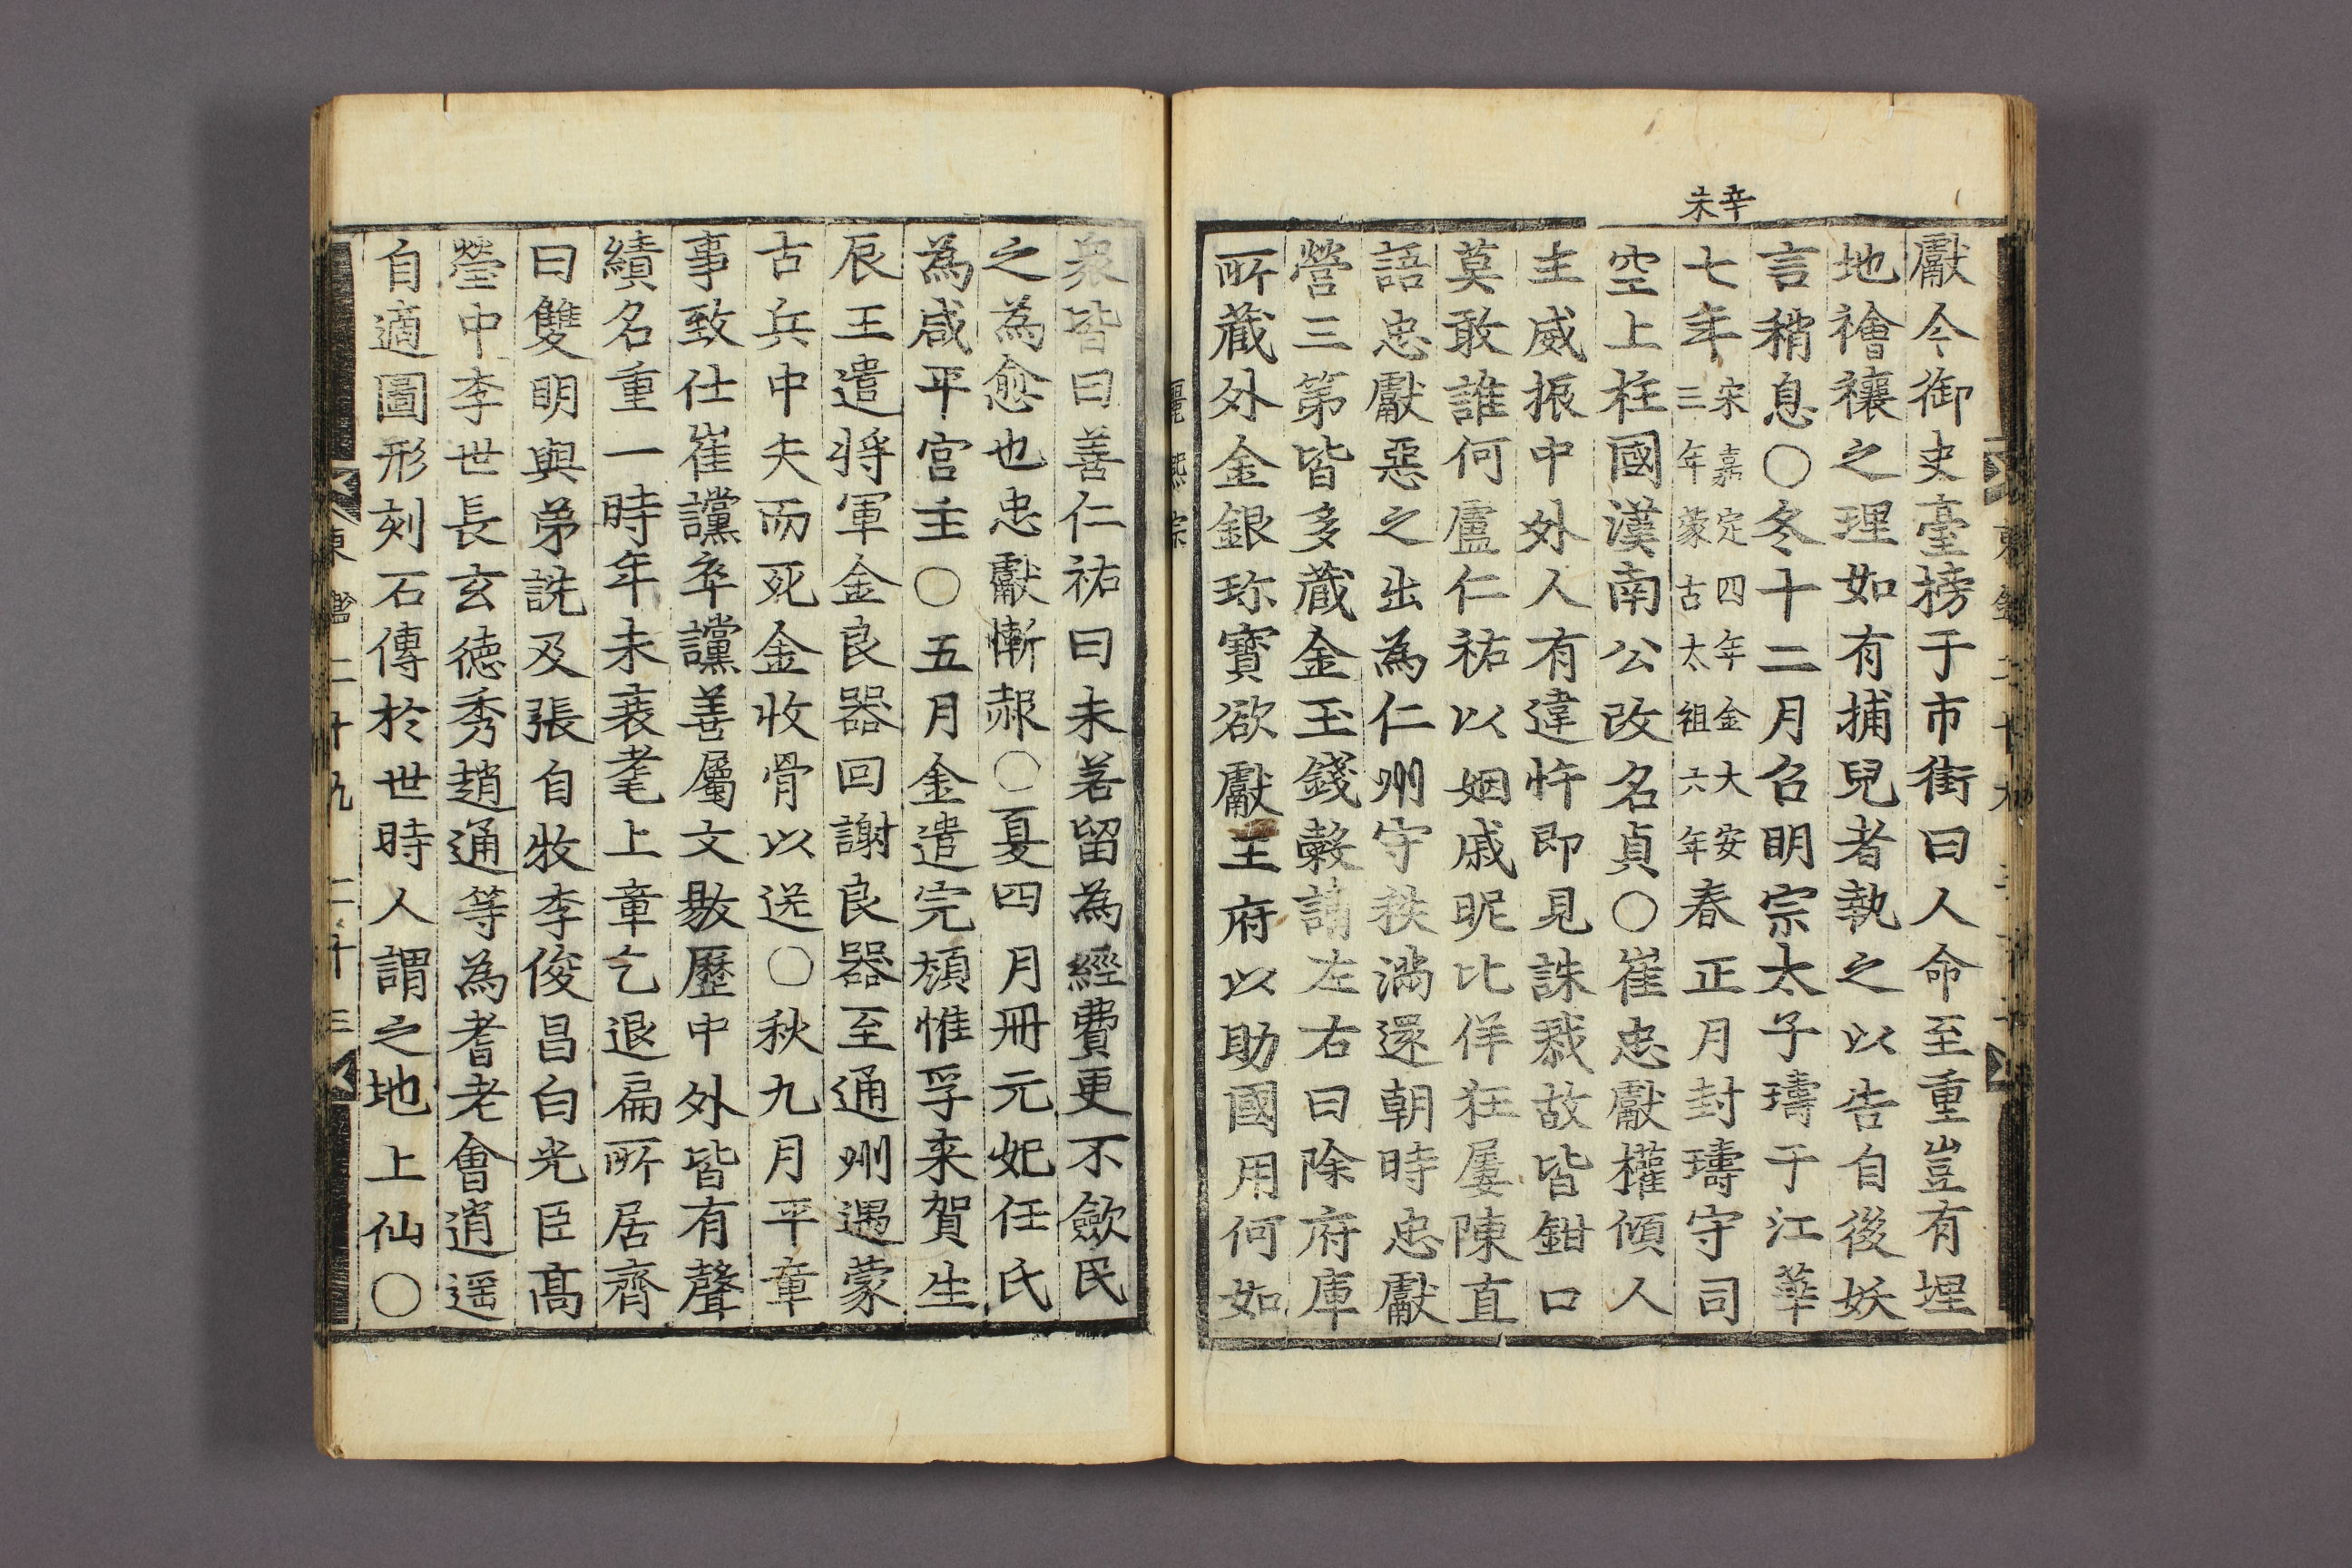 辛未
獻今御史臺榜于市街曰人命至重豈有埋
地禬禳之理如有捕兒者執之以告自後妖
言稍息○冬十二月召明宗太子璹于江華
七年宋嘉定四年金大安三年蒙古太祖六年春正月封璹守司
空上柱國漢南公改名貞○崔忠獻權傾人
主威振中外人有違忤即見誅戮故皆鉗口
莫敢誰何盧仁祐以姻戚昵比佯狂屢陳直
語忠獻惡之出為仁州守秩滿還朝時忠獻
營三第皆多藏金玉錢糓請左右曰除府庫
所藏外金銀珎寶欲獻王府以助國用何如
麗熙宗
衆皆曰善仁祐曰未若留為經費更不歛民
之為愈也忠獻慚赧○夏四月冊元妃任氏
為咸平宮主○五月金遣完頹惟孚来賀生
辰王遣將軍金良器回謝良器至通州遇蒙
古兵中夫而死金收骨以送○秋九月平章
事致仕崔讜卒讜善屬文敭歷中外皆有聲
績名重一時年未衰耄上章乞退扁所居齊
曰雙明與弟詵及張自牧李俊昌白光臣高
瑩中李世長玄德秀趙通等為耆老會逍遥
自適圖形刻石傳於世時人謂之地上仙○
東鑑二十九 二十三